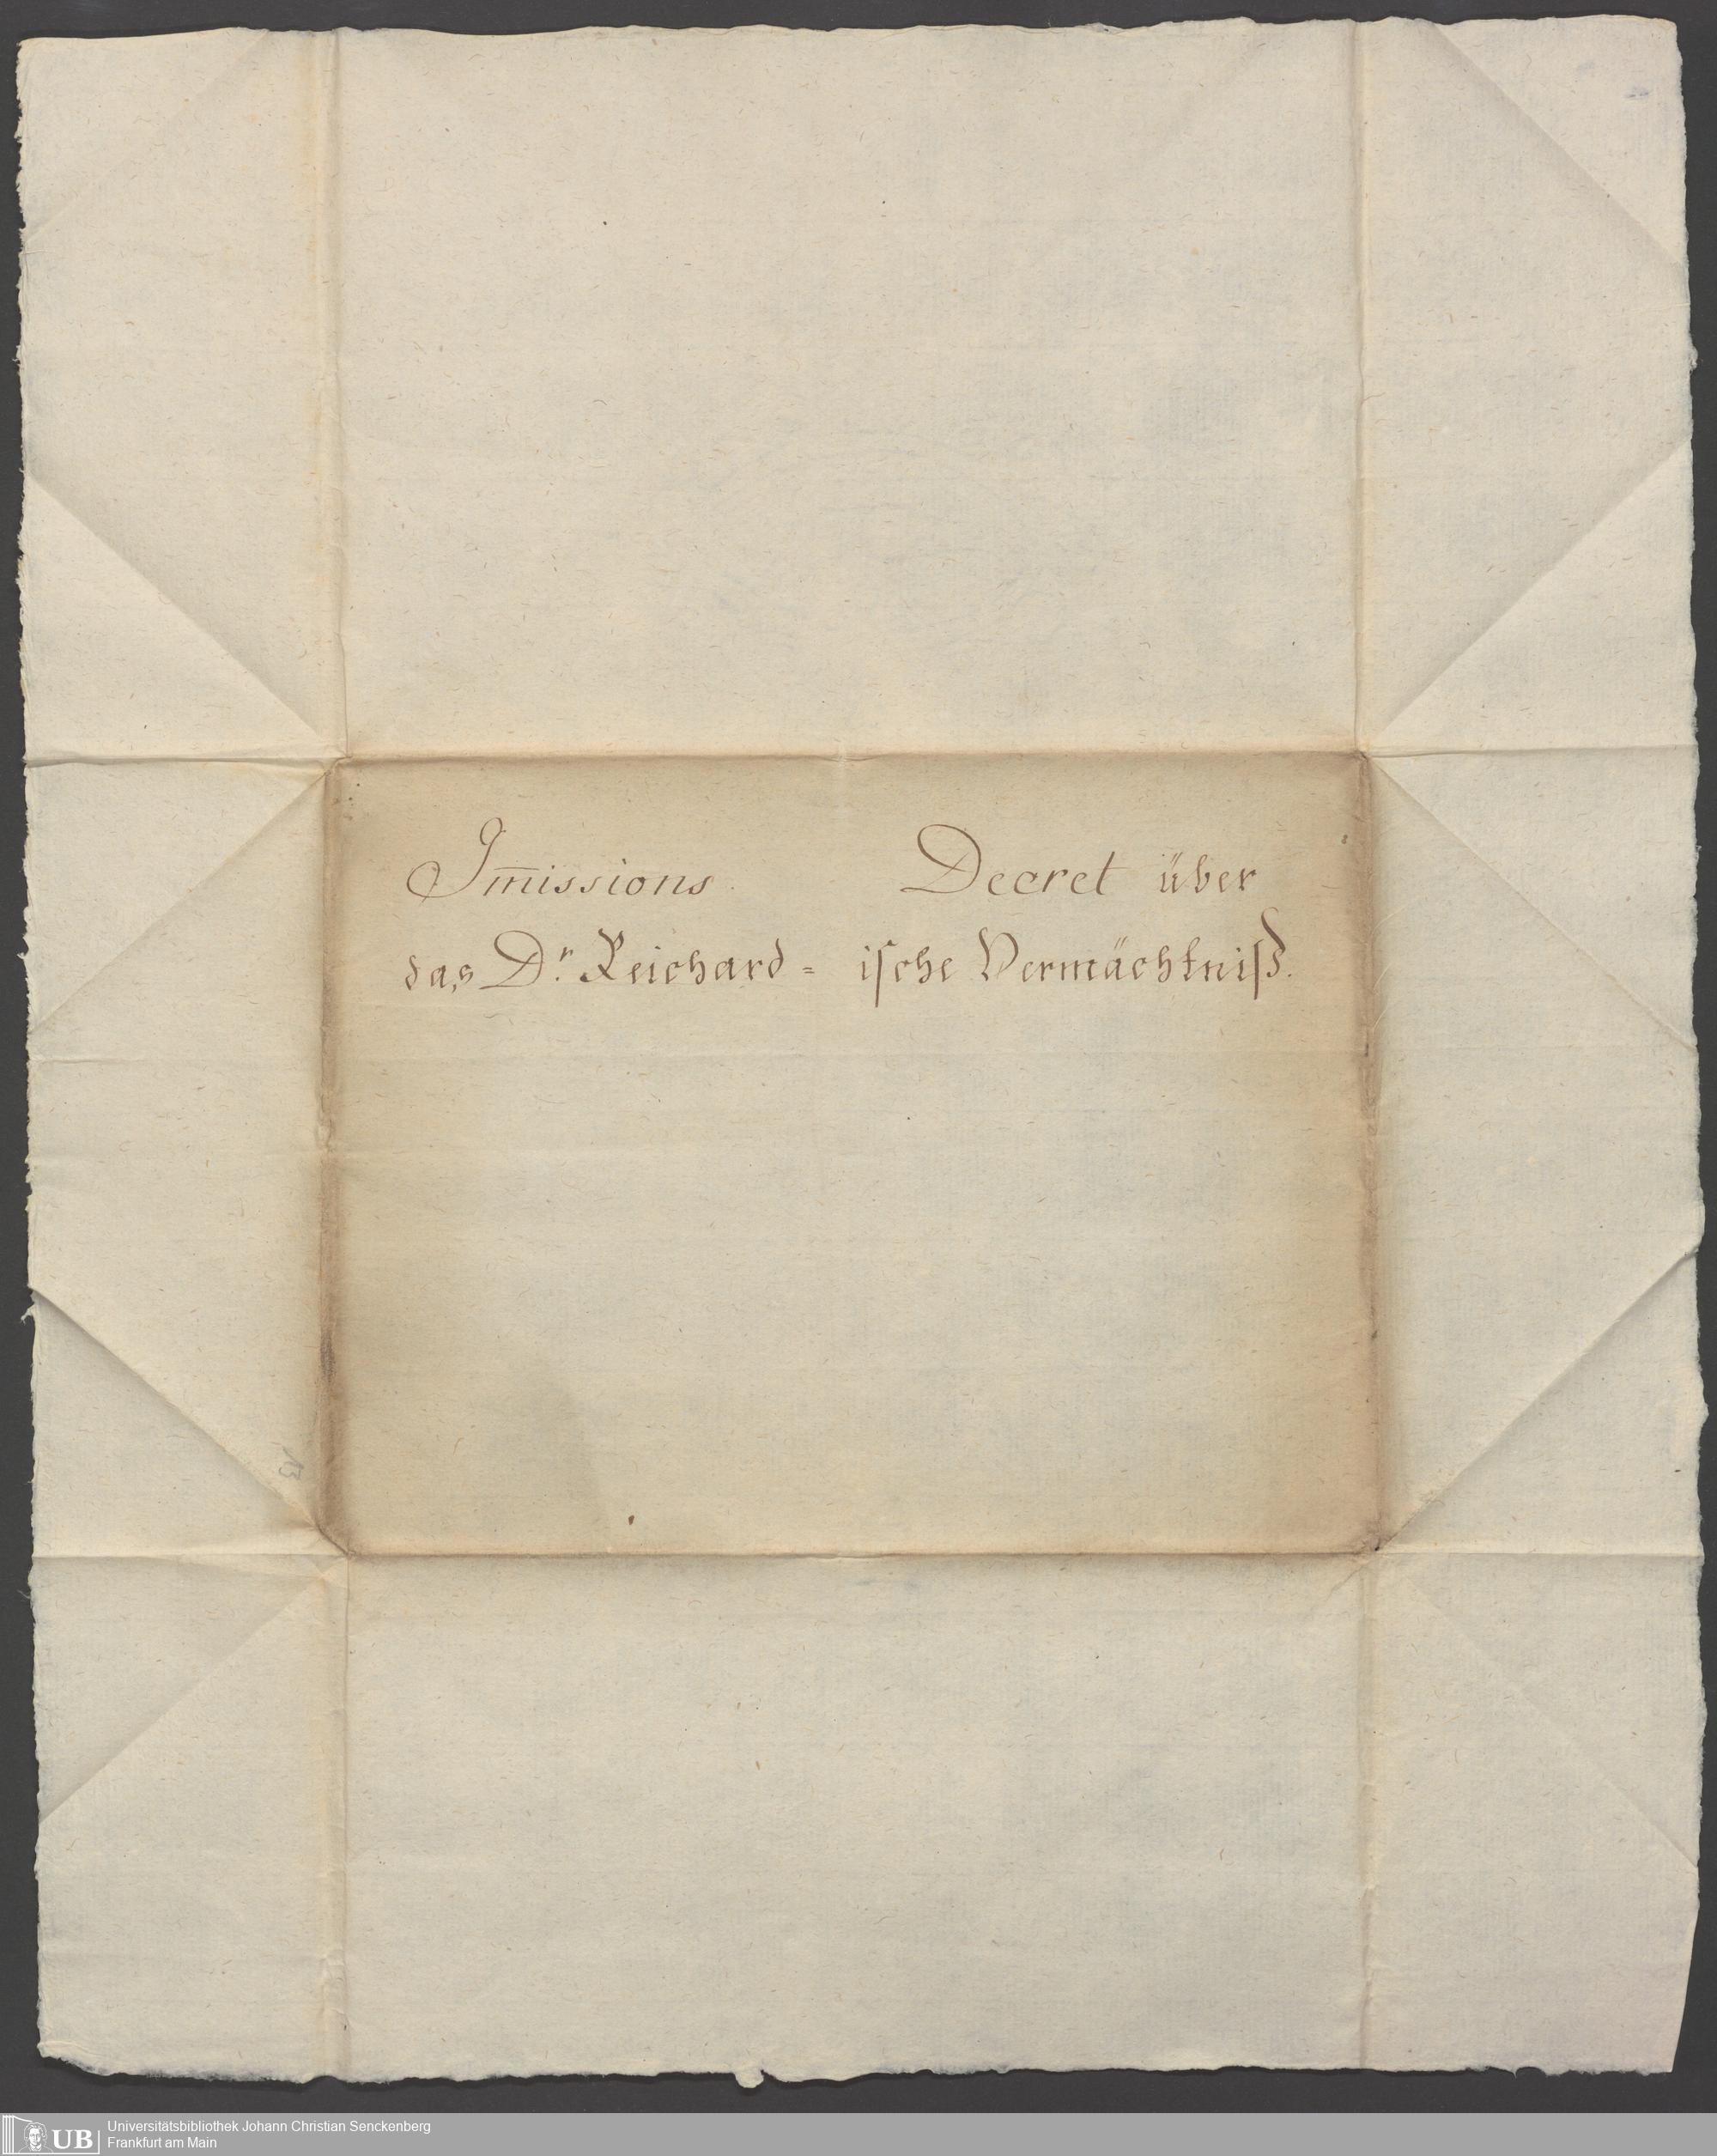 Im̅issions Decret über
das Dr. Reichard= iſche Vermächtniſß.
13
Universitätsbibliothek Johann Christian Senckenberg
Frankfurt am Main
UB